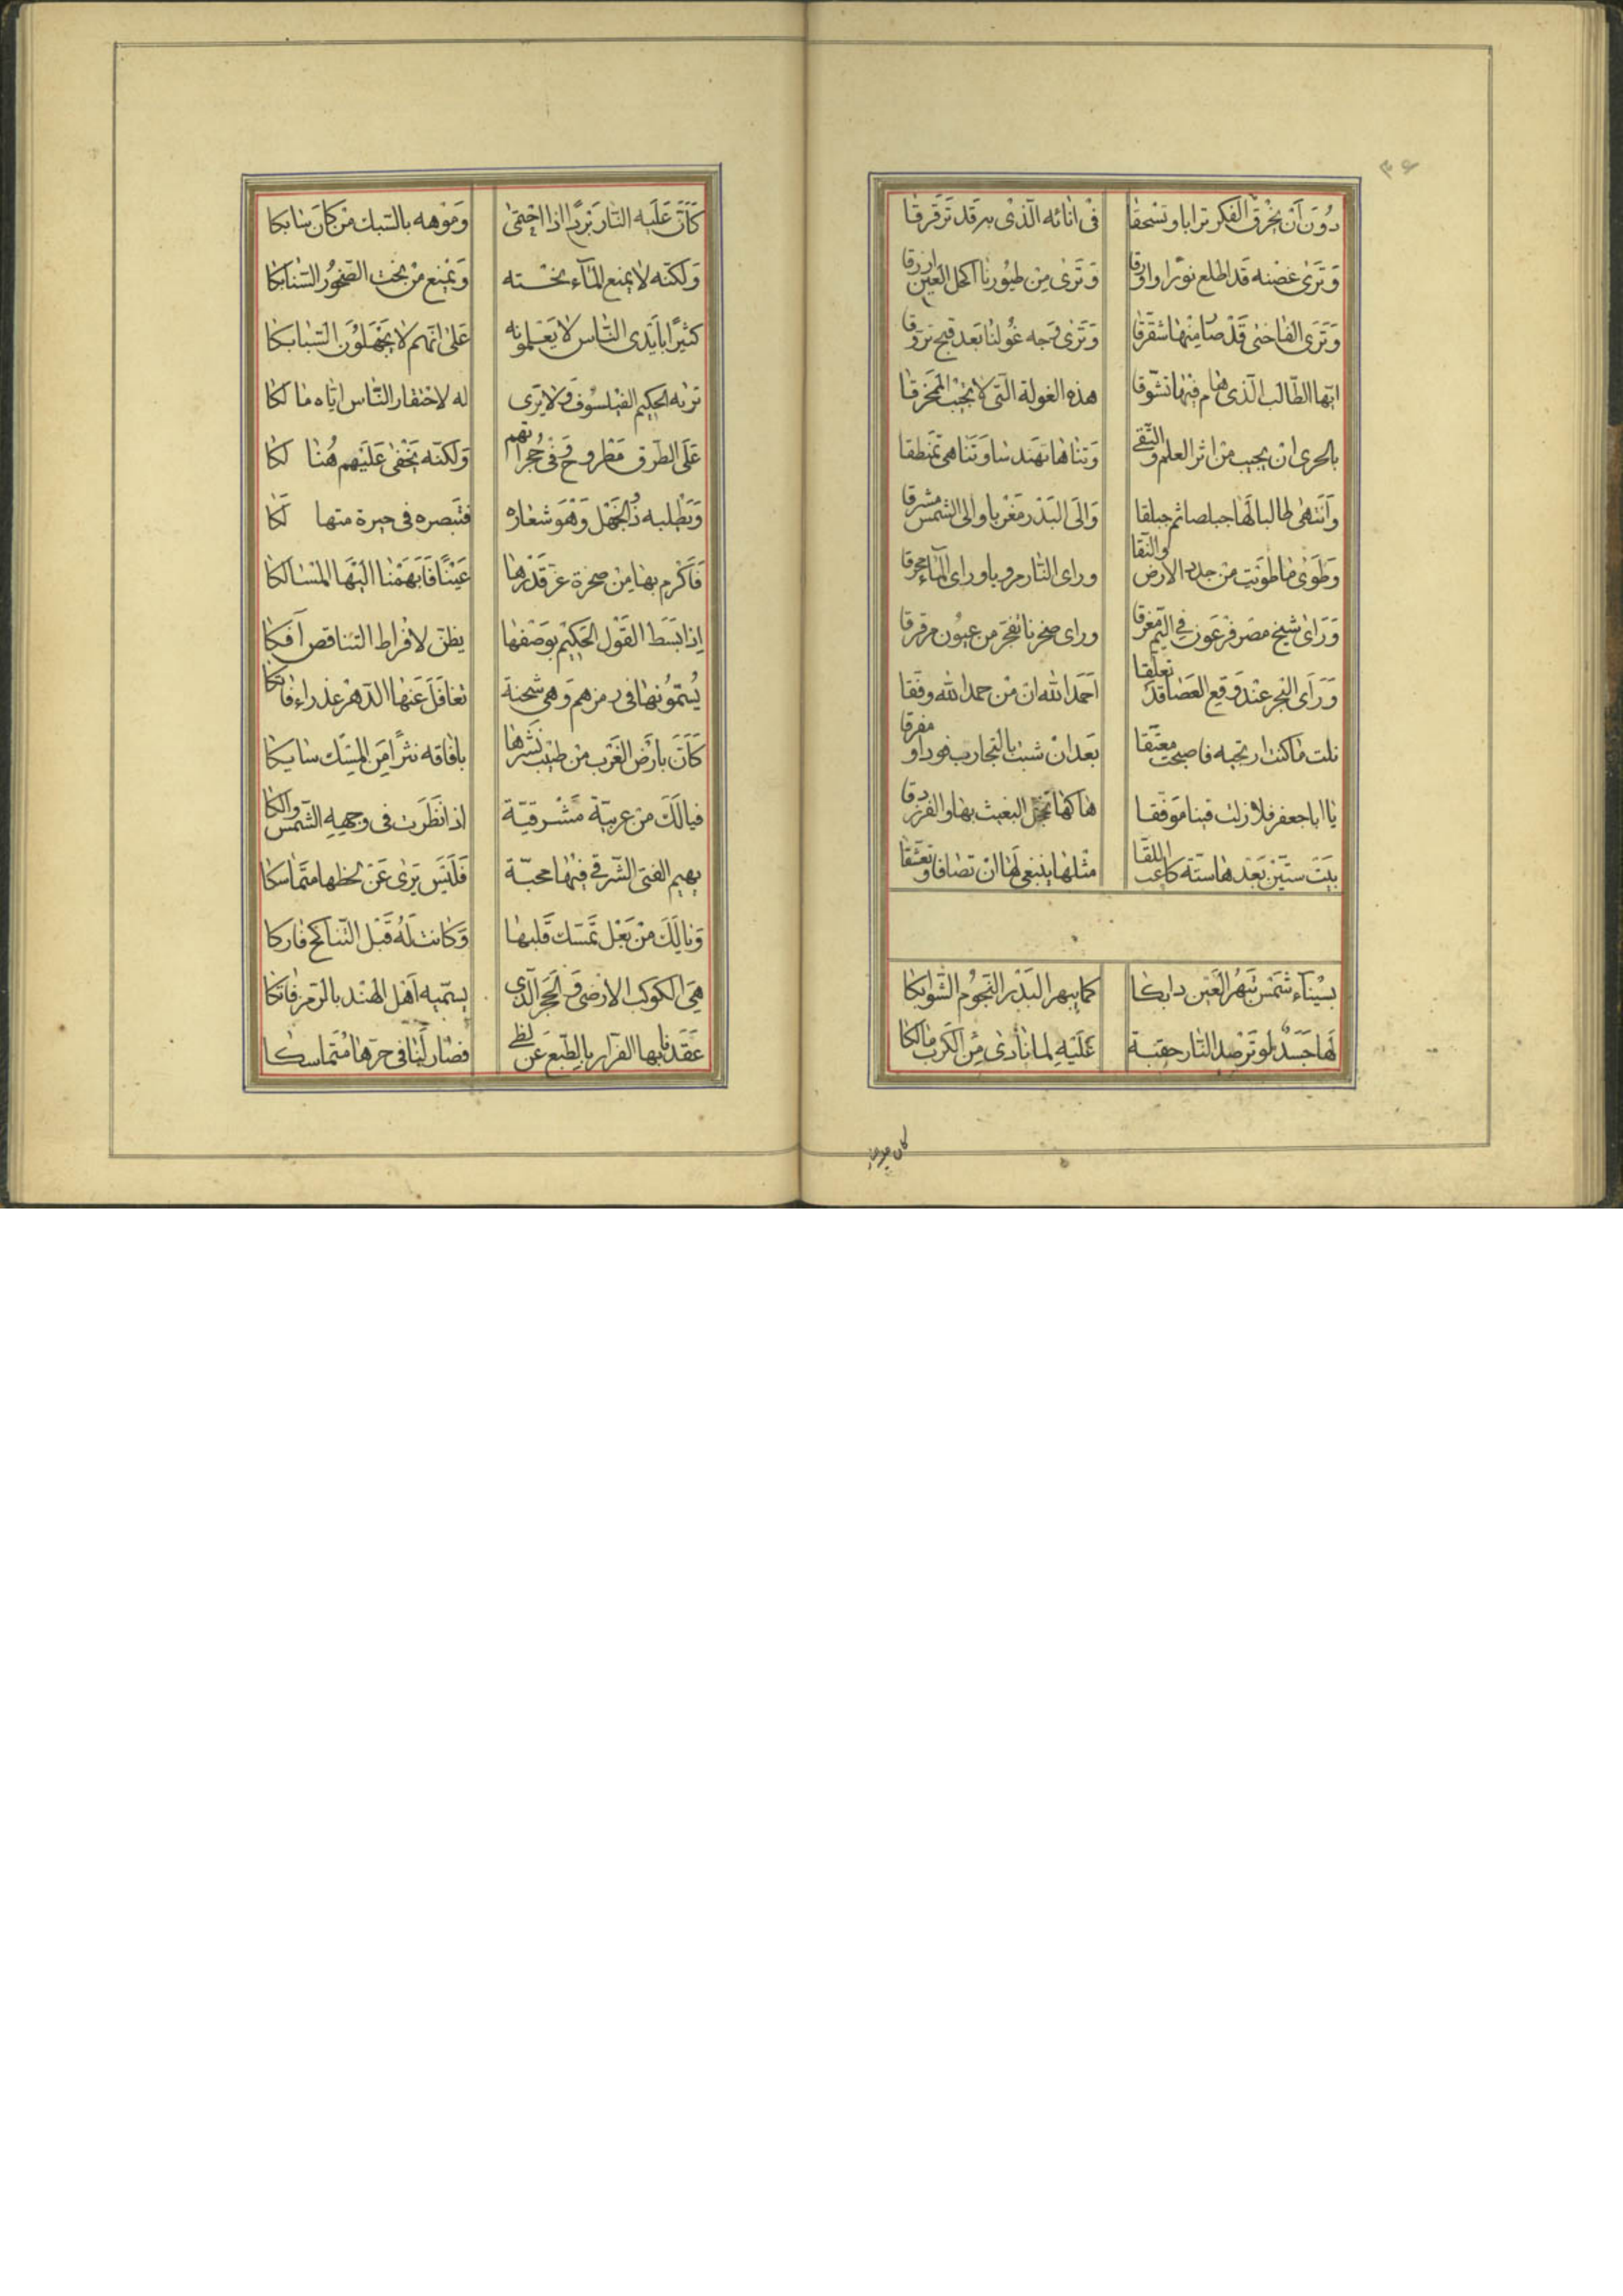 ٣۶
دُونَ اَنْ يَخْرُق الفكر ترابا وتسحقا فى انائه الّذى به قد تَرَقرقا
وَتَرى غصْنه قد اطلع نورًا واورقا وَتَرى مِن طيُورنا اكحل العَين ازرقا
وَتَرى الفاختى قَدْ صَا مِنْها شقرقا وَتَرى وَجه غُولنا بَعد قبح تروقا
ايّها الطّالب الّذى هَام فيْها تشوّقا هذه الغولة الّتى لا تجيْب المخرقا
بالحرى ان يجيب من اثر العلم والتّقى وَتناهَا تهندسا وَتَناهى تَمنطقا
وَاَنتهى طالبا لَها جبلصا ثم جبلقا وَالى البَدْر مَغربا وَالى الشمس مشرقا
وطَوَى مَا طوَيت من جلد الارض والنّقا وراى النّار مرويا وراى المآء محرقا
وَرَاى شيخ مصر فرْعَون فى اليَمّ مغرقا وراى صخرنا تفجّر من عيُون مرقرقا
وَرَاَى البَحر عنْد وَقع العَصَا قد تعلّقا اَحْمَد الله انّ من حمد الله وفّقا
نلت مَا كنت ارتجيه فاصبحت معتّقا بَعد انْ شبت بالتجارب فودا ومفرقا
يَا ابا جعفر فلا زلت فينا مَوفّقا هَاكهَا تخجل البعيث بهَا والفرزدقا
بيَت ستيّن بَعْدهَا ستّة كاعب اللقا مثْلهَا ينبغى لَهَا انْ تصَافا وتعشّقا
بسيْنآء شَمْس تبَهر العَين دابكَا كما يبهر البَدْر النّجوم الشّوابكا
لهَا جَسَدٌ لو ترْصد النّار حقبَة عَلَيْهِ لما نادى مِن الكرب مالكا
كان عليه النار
كَاَنّ عَلَيه النّار بَرْدًا اذا احْتمى وَموْهه بالسّبك مَن كَانَ سَابكا
وَلكنّه لا يمنع المآء نحْته وَيَمْنع مَن نحت الصّخور السّنابكا
كثيرًا بايَدى النّاس لا يَعْلمونه عَلى انّهم لا يَجْهَلوُن السّبابكا
تربه الحكيم الفيلسوُف وَلا يَرى له لاحْتقار النّاس ايّاه مَالكا
عَلَى الطّرق مَطروحٌ وَفى حُجراتهم وَلكنّه يَخْفى عَليَهم هُنالكا
وَيَطلبه ذُو الجَهْل وَهْوَ شعَاره فتبصره فى حيرة متهالكا
فَاَكْرم بهَا مِن صخرة عزّ قَدْرهَا عَيْنًا فَاَبهَمْنا اليَها المسَالكا
اِذَا بَسَط القَوْل الحَكيْم بوَصْفهَا يظنّ لافْراط التّناقص آفكا
يُسَمُّونهَا فى رمزهم وَهى شحنة تغَافَلَ عَنهَا الدّهْر عذراء فاتكا
كَاَنّ بارَض الغَرْب من طيْب نَشرهَا بافاقه نشرًا مِنَ المِسْك سَايكا
فيالَكَ من عربيّة مَشْرقيّة اذا نَظَرت فى وجههِ الشّمس والكا
يهيم الفتى الشّرقى فيْهَا محبّة فَلَيْس يَرى عَنْ لحظها متَماسكا
وَيالَكَ منْ بَعْل تمسّك قَلبهَا وَكَانت لَهُ قَبْل التّناكح فاركا
هِىَ الكوكب الارْضى وَالحَجَر الّذى يسمّيه اَهْل الهنْد بالرّمز فاتكا
عَقَدنا بها الفرّار بالطّبع عَن لظى فصَار لَنا فى حرّهَا مُتَماسكا